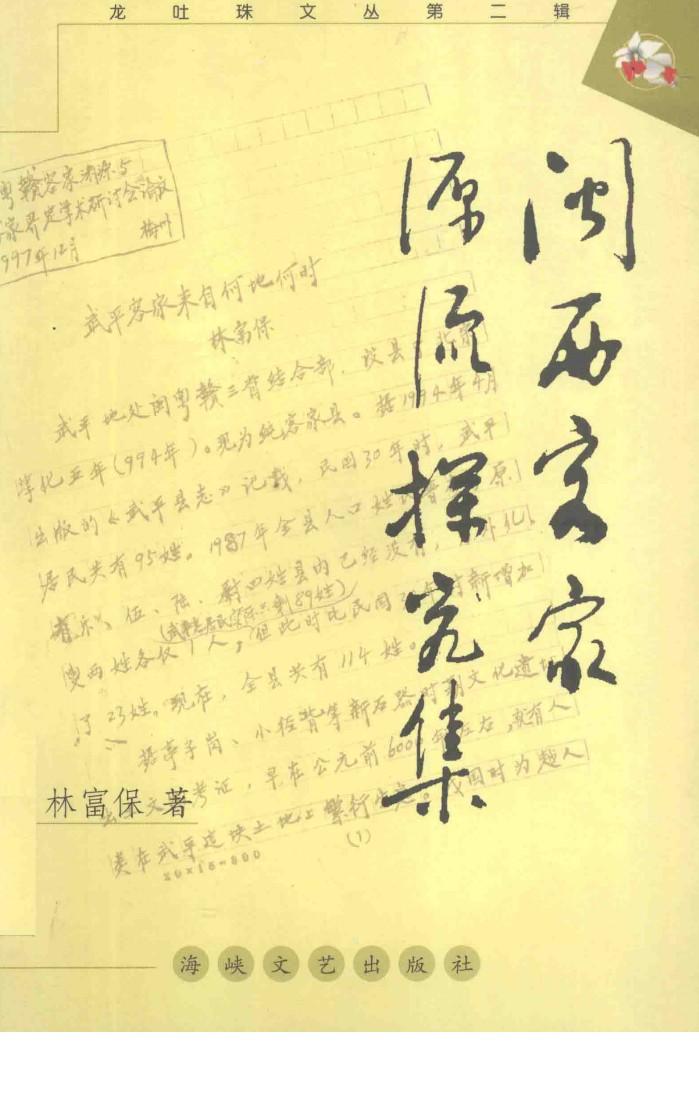 龙吐珠文丛第二辑
闽西客家
源流探究集
粤赣客家源流与
客家界定学术研讨会论文
1997年12月 梅州
武平客家来自何地何时
林富保
武平地处闽粤赣三省结合部，设县于北宋
淳化五年(994年)。现为纯客家县。据1994年4月
出版的《武平县志》记载，民国30年时，武平
居民共有95姓。1987年全县人口姓
伍、陆、尉四姓县内已经没有，
(武平
两姓各仅1人，但此时比民国 时新增加
了23姓。现在，全县共有114姓。
据亭子岗、小径背等新石器时期文化遗址
考证，早在公元前6000年左右，就有人
类在武平这块土地上繁衍生息。 时为越人
20×15=300
(1)
林富保 著
海峡文艺出版社